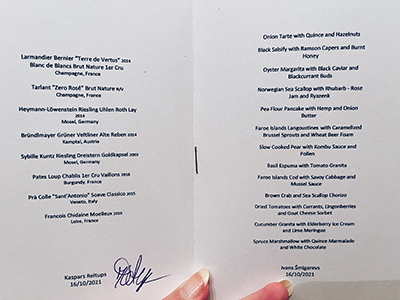 Larmandier Bernier "Terre de Vertus" 2014
Blanc de Blancs Brut Nature 1er Cru
Champagne, France
Tarlant "Zero Rosé" Brut Nature N/V
Champagne, France
Heymann-Löwenstein Riesling Uhlen Roth Lay
2014
Mosel, Germany
Bründlmayer Grüner Veltliner Alte Reben 2014
Kamptal, Austria
Sybille Kuntz Riesling Dreistern Goldkapsel 2003
Mosel, Germany
Pates Loup Chablis 1er Cru Vaillons 2018
Burgundy, France
Prà Colle "Sant'Antonio" Soave Classico 2015
Veneto, Italy
Francois Chidaine Moelleux 2016
Loire, France
Kaspars Reitups
16/10/2021
Onion Tarte with Quince and Hazelnuts
Black Salsify with Ramson Capers and Burnt
Honey
Oyster Margarita with Black Caviar and
Blackcurrant Buds
Norwegian Sea Scallop with Rhubarb - Rose
Jam and Ryazenk
Pea Flour Pancake with Hemp and Onion
Butter
Faroe Islands Langoustines with Caramelized
Brussel Sprouts and Wheat Beer Foam
Slow Cooked Pear with Kombu Sauce and
Pollen
Basil Espuma with Tomato Granita
Faroe Islands Cod with Savoy Cabbage and
Mussel Sauce
Brown Crab and Sea Scallop Chorizo
Dried Tomatoes with Currants, Lingonberries
and Goat Cheese Sorbet
Cucumber Granita with Elderberry Ice Cream
and Lime Meringue
Spruce Marshmallow with Quince Marmalade
and White Chocolate
Ivans Šmigarevs
16/10/2021